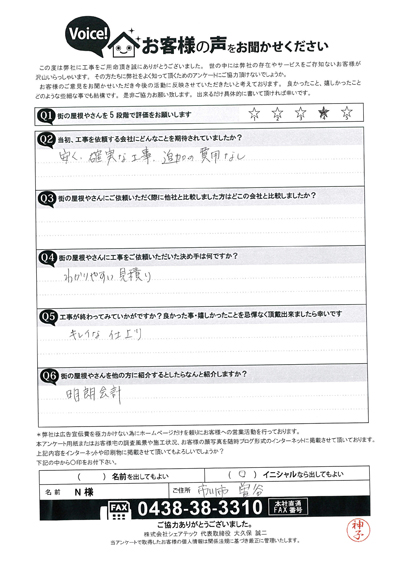 Voice! お客様の声をお聞かせください
この度は弊社に工事をご用命頂き誠にありがとうございました。世の中には弊社の存在やサービスをご存知ないお客様が
沢山いらっしゃいます。その方たちに弊社をよく知って頂くためのアンケートにご協力頂けないでしょうか。
お客様のご意見をお聞かせいただき今後の活動に反映させていただきたいと考えております。良かったこと、嬉しかったこと
どのような些細な事でも結構です。是非ご協力お願い致します。出来るだけ具体的に書いて頂ければ幸いです。
Q1 街の屋根やさんを5段階で評価をお願いします ☆ ☆ ☆ ★ ☆
Q2 当初、工事を依頼する会社にどんなことを期待されていましたか?
安く、確実な工事、追加の費用なし
Q3 街の屋根やさんにご依頼いただく際に他社と比較しました方はどこの会社と比較しましたか?
Q4 街の屋根やさんに工事をご依頼いただいた決め手は何ですか?
わかりやすい見積り
Q5 工事が終わってみていかがですか?良かった事・嬉しかったことを忌憚なく頂戴出来ましたら幸いです
キレイな仕上り
Q6 街の屋根やさんを他の方に紹介するとしたらなんと紹介しますか?
明朗会計
*弊社は広告宣伝費を極力かけない為にホームページだけを頼りにお客様への営業活動を行っております。
本アンケート用紙またはお客様宅の調査風景や施工状況、お客様の顔写真を随時ブログ形式のインターネットに掲載させて頂いております。
上記内容をインターネットや印刷物に掲載させて頂いてもよろしいでしょうか?
下記の中から〇印をお付下さい。
( ) 名前を出してもよい (〇) イニシャルなら出してもよい
名前 N様 ご住所 市川市
FAX 0438-38-3310 本社直通 FAX番号
ご協力ありがとうございました。
株式会社シェアテック 代表取締役 大久保 誠二
当アンケートで取得したお客様の個人情報は関係法規に基づき厳正に管理いたします。
神子